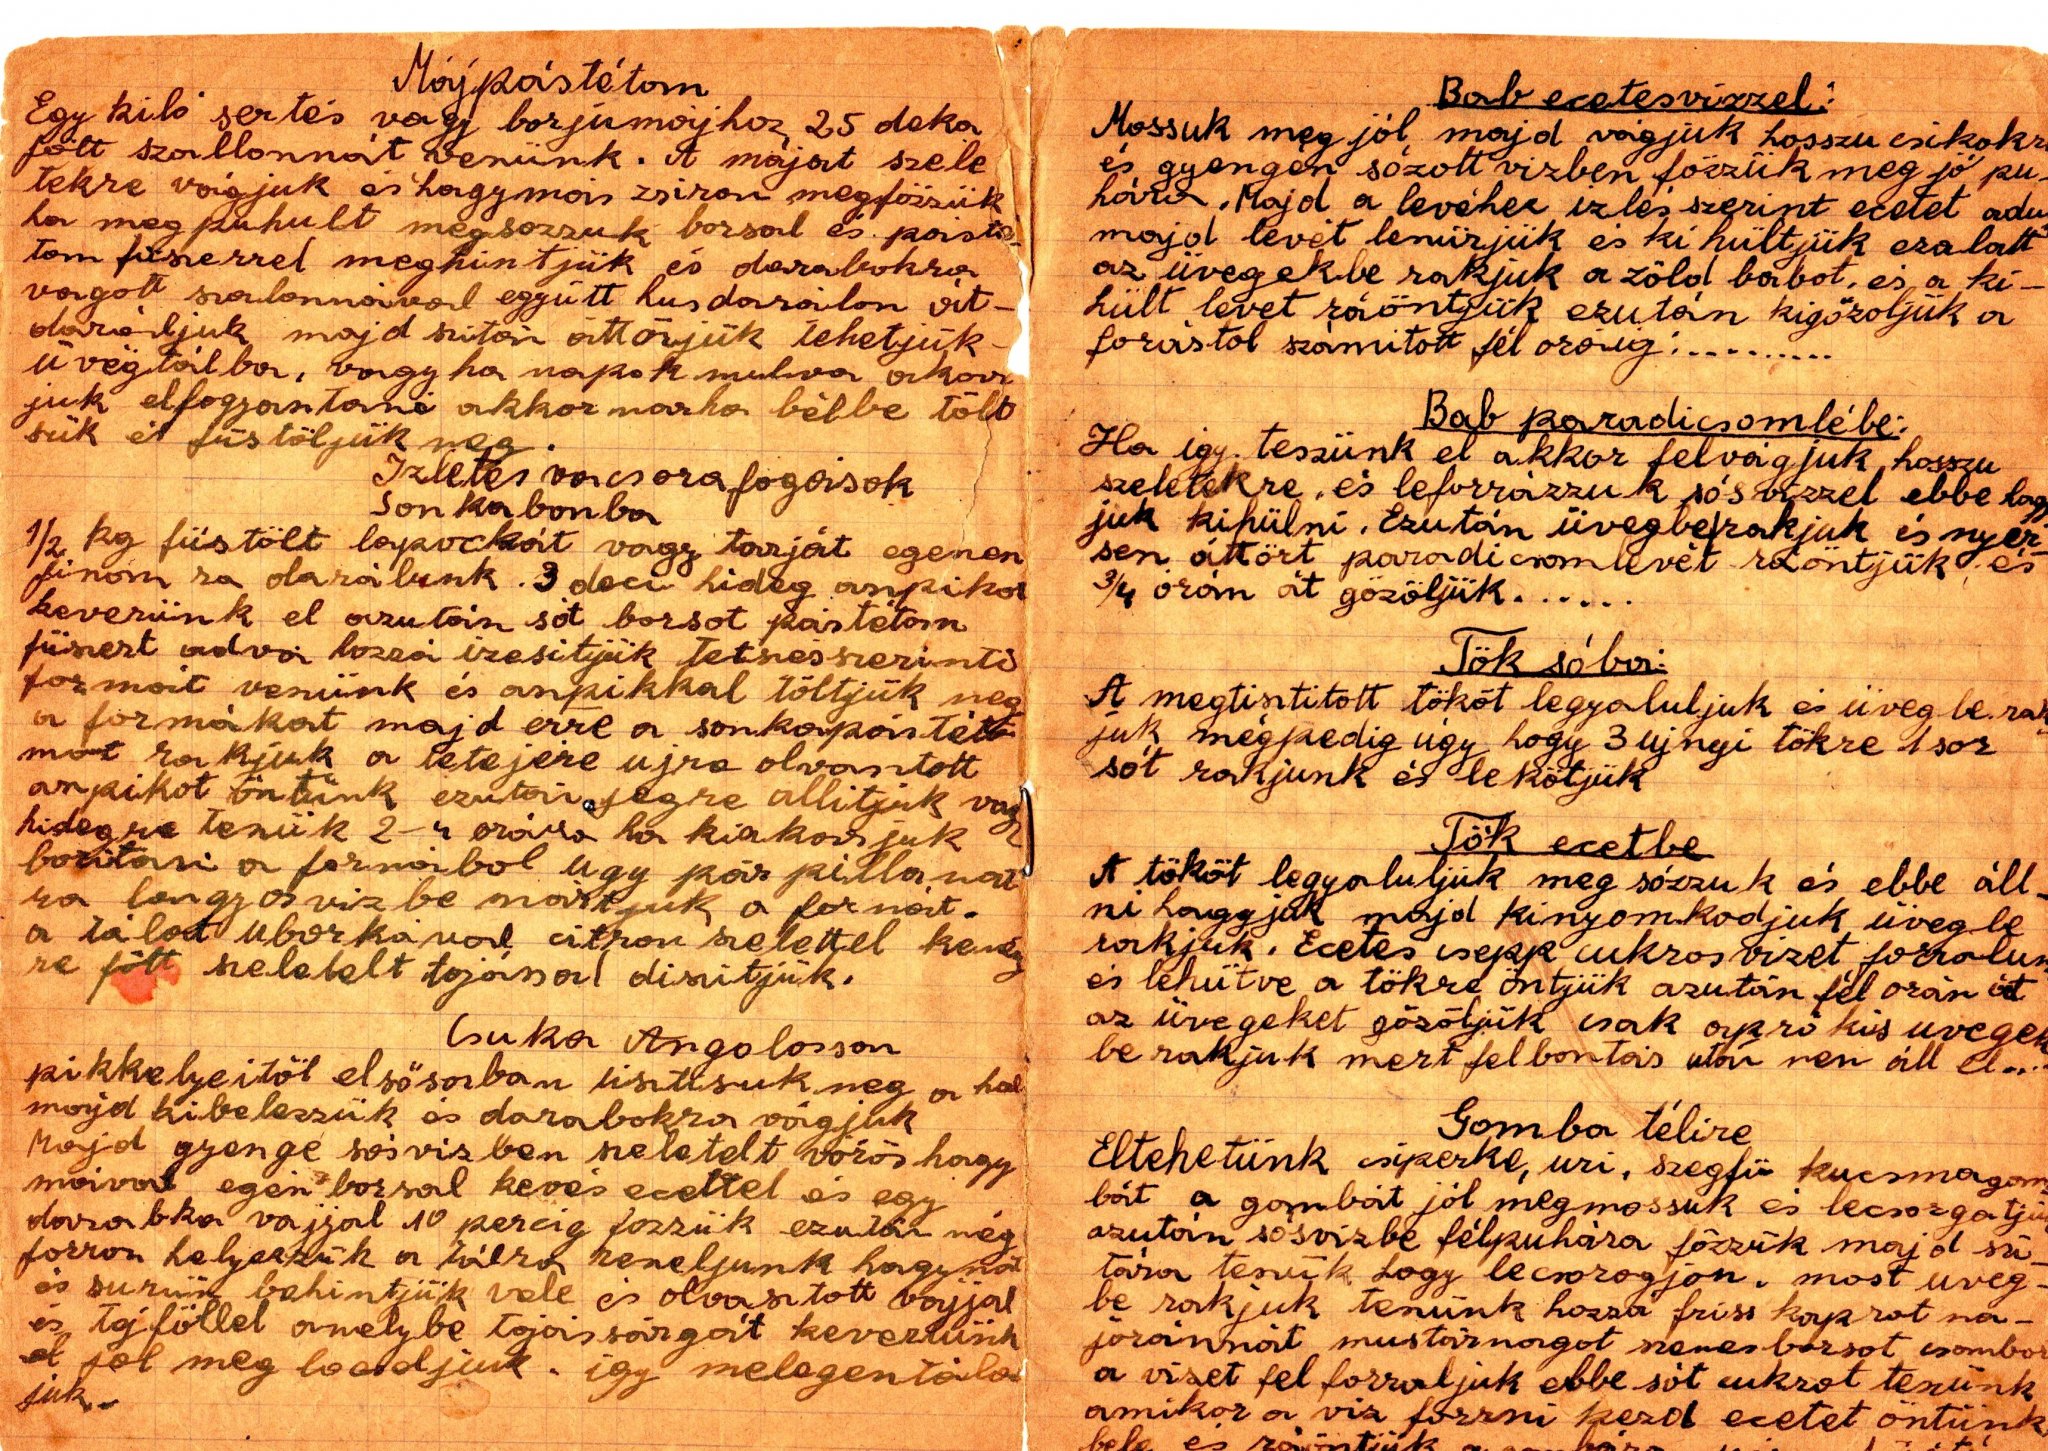 Májpástétom
Egy kiló sertés vagy borjúmájhoz 25 deka
főtt szallonnát veszünk. A májat szele
tekre vágjuk és hagymás zsíron megfőzzük
ha megpuhult megsozzuk borsal és pásté-
tom fűszerrel meghintjük és darabokra
vagott szalonnával együtt husdarálon át-
daráljuk majd szitán áttörjük tehetjük
üvegtálba, vagy ha napok mulva akar
juk elfogyantani akkor marha bélbe tölt
sük és füstöljük meg.
Izletes vacsora fogások
Sonkabomba
1/2 kg füstölt lapockát vagy tarját egészen
finom ra darálunk. 3 deci hideg aszpikot
keverünk el azután sót borsot pástétom
fűszert adva hozzá izesitjük Tetszésszerinti
formát veszünk és aszpikkal töltjük meg
a formákat majd erre a sonkapástéto
mot rakjuk a tetejére ujra olvasztott
aszpikot öntünk ezután jégre allitjuk vagy
hidegre teszük 2-4 orára ha kiakarjuk
boritani a formából ugy pár pillanat
ra langyosvizbe mártjuk a formát.
a tálat uborkával citrom szelettel kemény
re főtt szeletelt tojással diszitjük.
Csuka Angolosson
pikkelyeitől elsősorban tisztisuk meg a hal
majd kibelezzük és darabokra vágjuk
Majd gyenge sósvizben szeletelt vöröshagy
mával egész borsal kevés ecettel és egy
darabka vajjal 10 percig fozzük ezután még
forron helyezzük a tálra reszeljunk hagymát
és surün behintjük vele és olvasztott vajjal
és tejföllel amelybe tojássárgát keverünk
el jol meg locsoljuk. így melegen tála
juk.
Bab ecetesvizzel:
Mossuk meg jól, majd vágjuk hosszu csikokra
és gyengén sózott vizben főzzük meg jó pu-
hára. Majd a levéhez izlés szerint ecetet adu
majd levét leszürjük és ki hültjük ezalatt
az üvegekbe rakjuk a zöld babot. és a ki-
hült levet ráöntjük ezután kigőzöljük a
forástol számitott fél oráig:..........
Bab paradicsomlébe:
Ha igy teszünk el akkor felvágjuk hosszu
szeletekre. és leforrázzuk sósvizzel ebbe hagy
juk kihülni. Ezután üvegbe rakjuk és nyer
sen áttört paradicsomlevét ráöntjük, és
3/4 órán át gőzöljük......
Tök sóba:
A megtisztitott tököt legyaluljuk és üvegbe rak
juk mégpedig úgy hogy 3 ujnyi tökre 1 sor
sót rakjunk és lekötjük
Tök ecetbe
A tököt legyaluljuk meg sózzuk és ebbe áll-
ni hagyjuk majd kinyomkodjuk üvegbe
rakjuk. Ecetes csepp cukros vizet forralun
és lehütve a tökre öntjük azután fél orán át
az üvegeket gőzöljük csak apró kis uvegek
be rakjuk mert felbontás után nem áll el....
Gomba télire
Eltehetünk csiperke, uri, szegfü kucsmagom
bát a gombát jól megmossuk és lecsorgatjuk
azután sósvizbe félpuhára főzzük majd szi-
tára teszük hogy lecsorogjon. most uveg-
be rakjuk teszünk hozzá friss kaprot ma-
jóránnát mustármagot szemesborsot csombor
a vizet fel forraljuk ebbe sót cukrot teszünk
amikor a viz forrni kezd ecetet öntünk
bele és ráöntjük a gombára